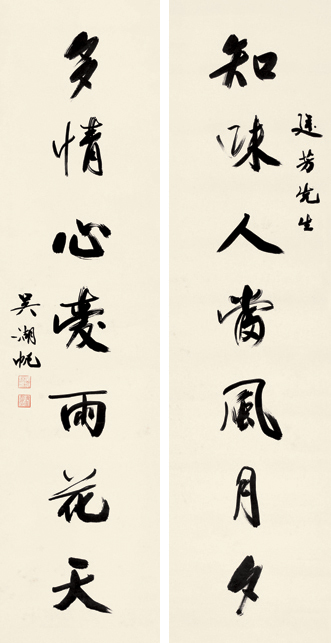 知味人當風月夕
廷芳先生
多情心愛雨花天
吳湖帆